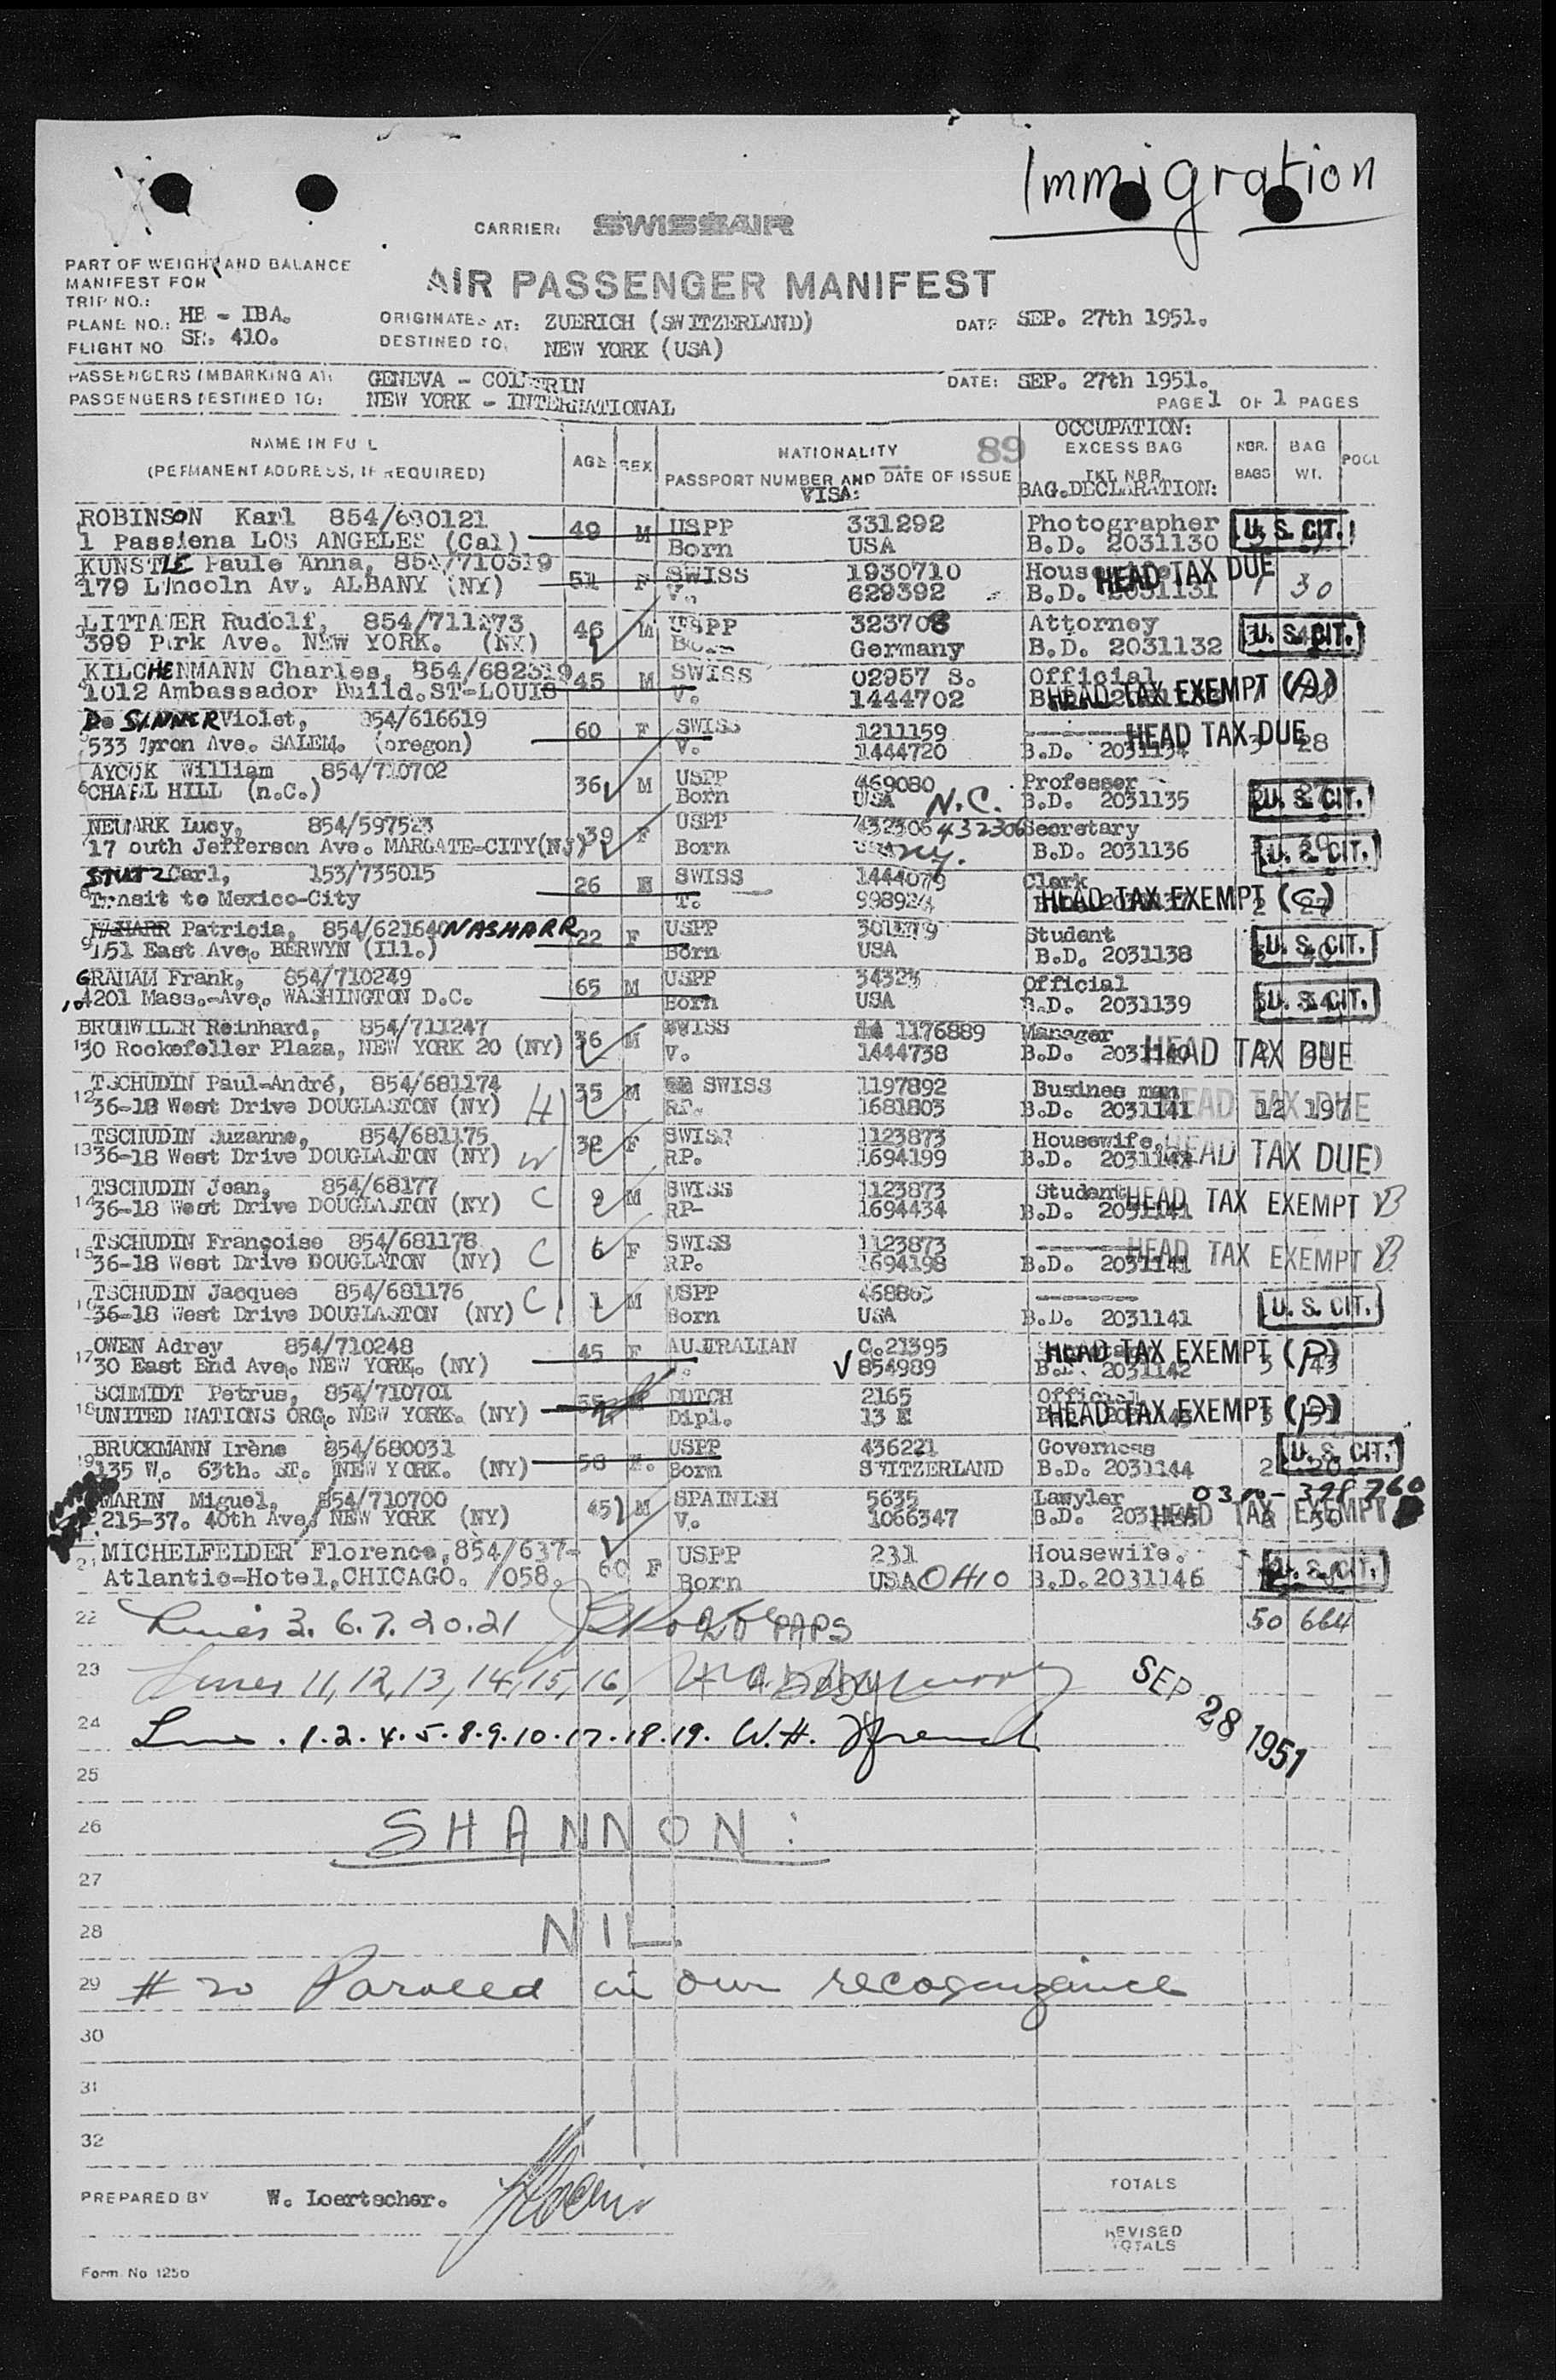 Immigration
CARRIER: SWISSAIR
PART OF WEIGHT AND BALANCE
MANIFEST FOR
AIR PASSENGER MANIFEST
TRIP NO.:
PLANE NO.: HB - IBA.
ORIGINATES AT: ZUERICH (SWITZERLAND)
DATE SEP. 27th 1951.
FLIGHT NO SR. 410.
DESTINED TO: NEW YORK (USA)
PASSENGERS EMBARKING AT: GENEVA - COINTRIN
DATE: SEP. 27th 1951.
PASSENGERS DESTINED TO: NEW YORK - INTERNATIONAL
PAGE 1 OF 1 PAGES
NAME IN FULL
(PERMANENT ADDRESS, IF REQUIRED)
AGE SEX
NATIONALITY 89
PASSPORT NUMBER AND DATE OF ISSUE
VISA:
OCCUPATION:
EXCESS BAG
TKT NBR
BAG.DECLARATION:
NBR. BAGS
BAG WT.
POOL
ROBINSON Karl 854/680121 49 M USPP 331292 Photographer U. S. CIT.
1 Passiena LOS ANGELES (Cal) Born USA B.D. 2031130
KUNSTLE Paule Anna, 51 F SWISS 1930710 HEAD TAX DUE
179 Lincoln Av. ALBANY (NY) V. 629392 B.D. 2031131 1 30
LITTAUER Rudolf, 854/711273 46 M USPP 323708 Attorney U. S. CIT.
399 Park Ave. NEW YORK. (NY) Germany B.D. 2031132
KILCHENMANN Charles, 854/682319 45 M SWISS 02957 S. Official
1012 Ambassador Build. ST-LOUIS V. 1444702 HEAD TAX EXEMPT (A)
De SINNER Violet, 854/616619 60 F SWISS 1211159 HEAD TAX DUE
533 Tyron Ave. SALEM. (oregon) V. 1444720 B.D. 2031134 3 28
AYCOK William 854/710702 36 M USPP 469080 Professer
6 CHAPL HILL (n.C.) Born USA N.C. B.D. 2031135 U. S. CIT.
NEUMARK Lucy, 854/597523 39 F USPP 432306 432306 Secretary
17 outh Jefferson Ave. MARGATE-CITY(NJ) Born ny. B.D. 2031136 U. S. CIT.
STUTZ Carl, 153/735015 26 SWISS 1444079 Clerk
8 Trnasit to Mexico-City T. HEAD TAX EXEMPT (C) 2 27
Patricia, 854/621640 NASHARR 22 F USPP Student U. S. CIT.
9 151 East Ave. BERWYN (Ill.) Born USA B.D. 2031138
GRAHAM Frank, 854/710249 65 M USPP 34323 Official
10 4201 Mass.-Ave. WASHINGTON D.C. Born USA B.D. 2031139 U. S. CIT.
BRUHWILER Reinhard, 854/711247 36 M SWISS 1176889 Manager
30 Rockefeller Plaza, NEW YORK 20 (NY) V. 1444738 B.D. HEAD TAX DUE
TSCHUDIN Paul-André, 854/681174 35 M SWISS 1197892 Busines man
12 36-18 West Drive DOUGLASTON (NY) H RP. 1681803 B.D. 2031141 HEAD TAX DUE 12 197
TSCHUDIN Suzanne, 854/681175 F SWISS 1123873 Housewife,
13 36-18 West Drive DOUGLASTON (NY) W RP. 1694199 B.D. HEAD TAX DUE)
TSCHUDIN Jean, 854/68177 M SWISS 1123873 Student
14 36-18 West Drive DOUGLASTON (NY) C RP- 1694434 B.D. 2031141 HEAD TAX EXEMPT B
TSCHUDIN Françoise 854/681178 6 F SWISS 1123873
15 36-18 West Drive DOUGLATON (NY) C RP. 1694198 B.D. 2031141 HEAD TAX EXEMPT B
TSCHUDIN Jacques 854/681176 1 M USPP
16 36-18 West Drive DOUGLASTON (NY) C Born USA B.D. 2031141 U. S. CIT.
OWEN Adrey 854/710248 45 F C.21395 HEAD TAX EXEMPT (P)
17 30 East End Ave. NEW YORK. (NY) 854989 2031142
SCHMIDT Petrus, 854/710701 55 DUTCH 2165 Official
18 UNITED NATIONS ORG. NEW YORK. (NY) Dipl. HEAD TAX EXEMPT (P)
BRUCKMANN Irène 854/680031 58 F. USPP 436221 Governess U. S. CIT.
19 135 W. 63th. ST. NEW YORK. (NY) Born SWITZERLAND B.D. 2031144 2
MARIN Miguel, 854/710700 45 M SPAINISH 5635 Lawyler
215-37. 40th Ave, NEW YORK (NY) V. 1066347 B.D. HEAD TAX EXEMPT
MICHELFELDER Florence, 854/637- 60 F USPP 231 Housewife.
21 Atlantic-Hotel, CHICAGO. /058. Born USA OHIO B.D.2031146 U. S. CIT.
22 Lines 3. 6. 7. 20. 21 50 664
23 Lines 11, 12, 13, 14, 15, 16,
SEP 28 1951
24 1. 2. 4. 5. 8. 9. 10. 17. 18. 19. W. H.
25
26 SHANNON:
27
28 NIL
29 # 20 Paroled in own recognizance
30
31
32
PREPARED BY W. Loertscher.
TOTALS
REVISED
TOTALS
Form No 1250